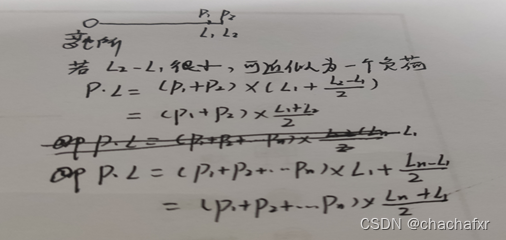 P₁ P₂
L₁ L₂
变电所
若 L₂-L₁ 很小, 可近似认为一个负荷
P·L = (P₁+P₂)×(L₁+\frac{L₂-L₁}{2})
= (P₁+P₂)×\frac{L₁+L₂}{2}
即 P·L = (P₁+P₂+…Pₙ)× L₁
即 P·L = (P₁+P₂+…Pₙ)×L₁+\frac{Lₙ-L₁}{2}
= (P₁+P₂+…Pₙ)×\frac{Lₙ+L₁}{2}
CSDN @chachafxr